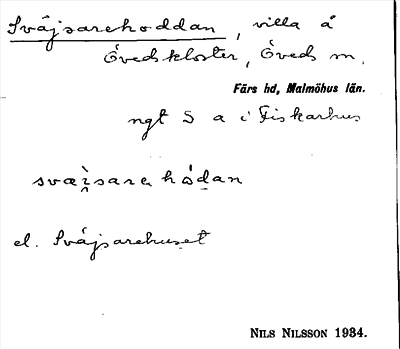 Sväjsarekoddan, villa å
Övedskloster, Öveds sn,
Färs hd, Malmöhus län.
ngt S a i Fiskarhus
el. Sväjsarehuset
NILS NILSSON 1934.